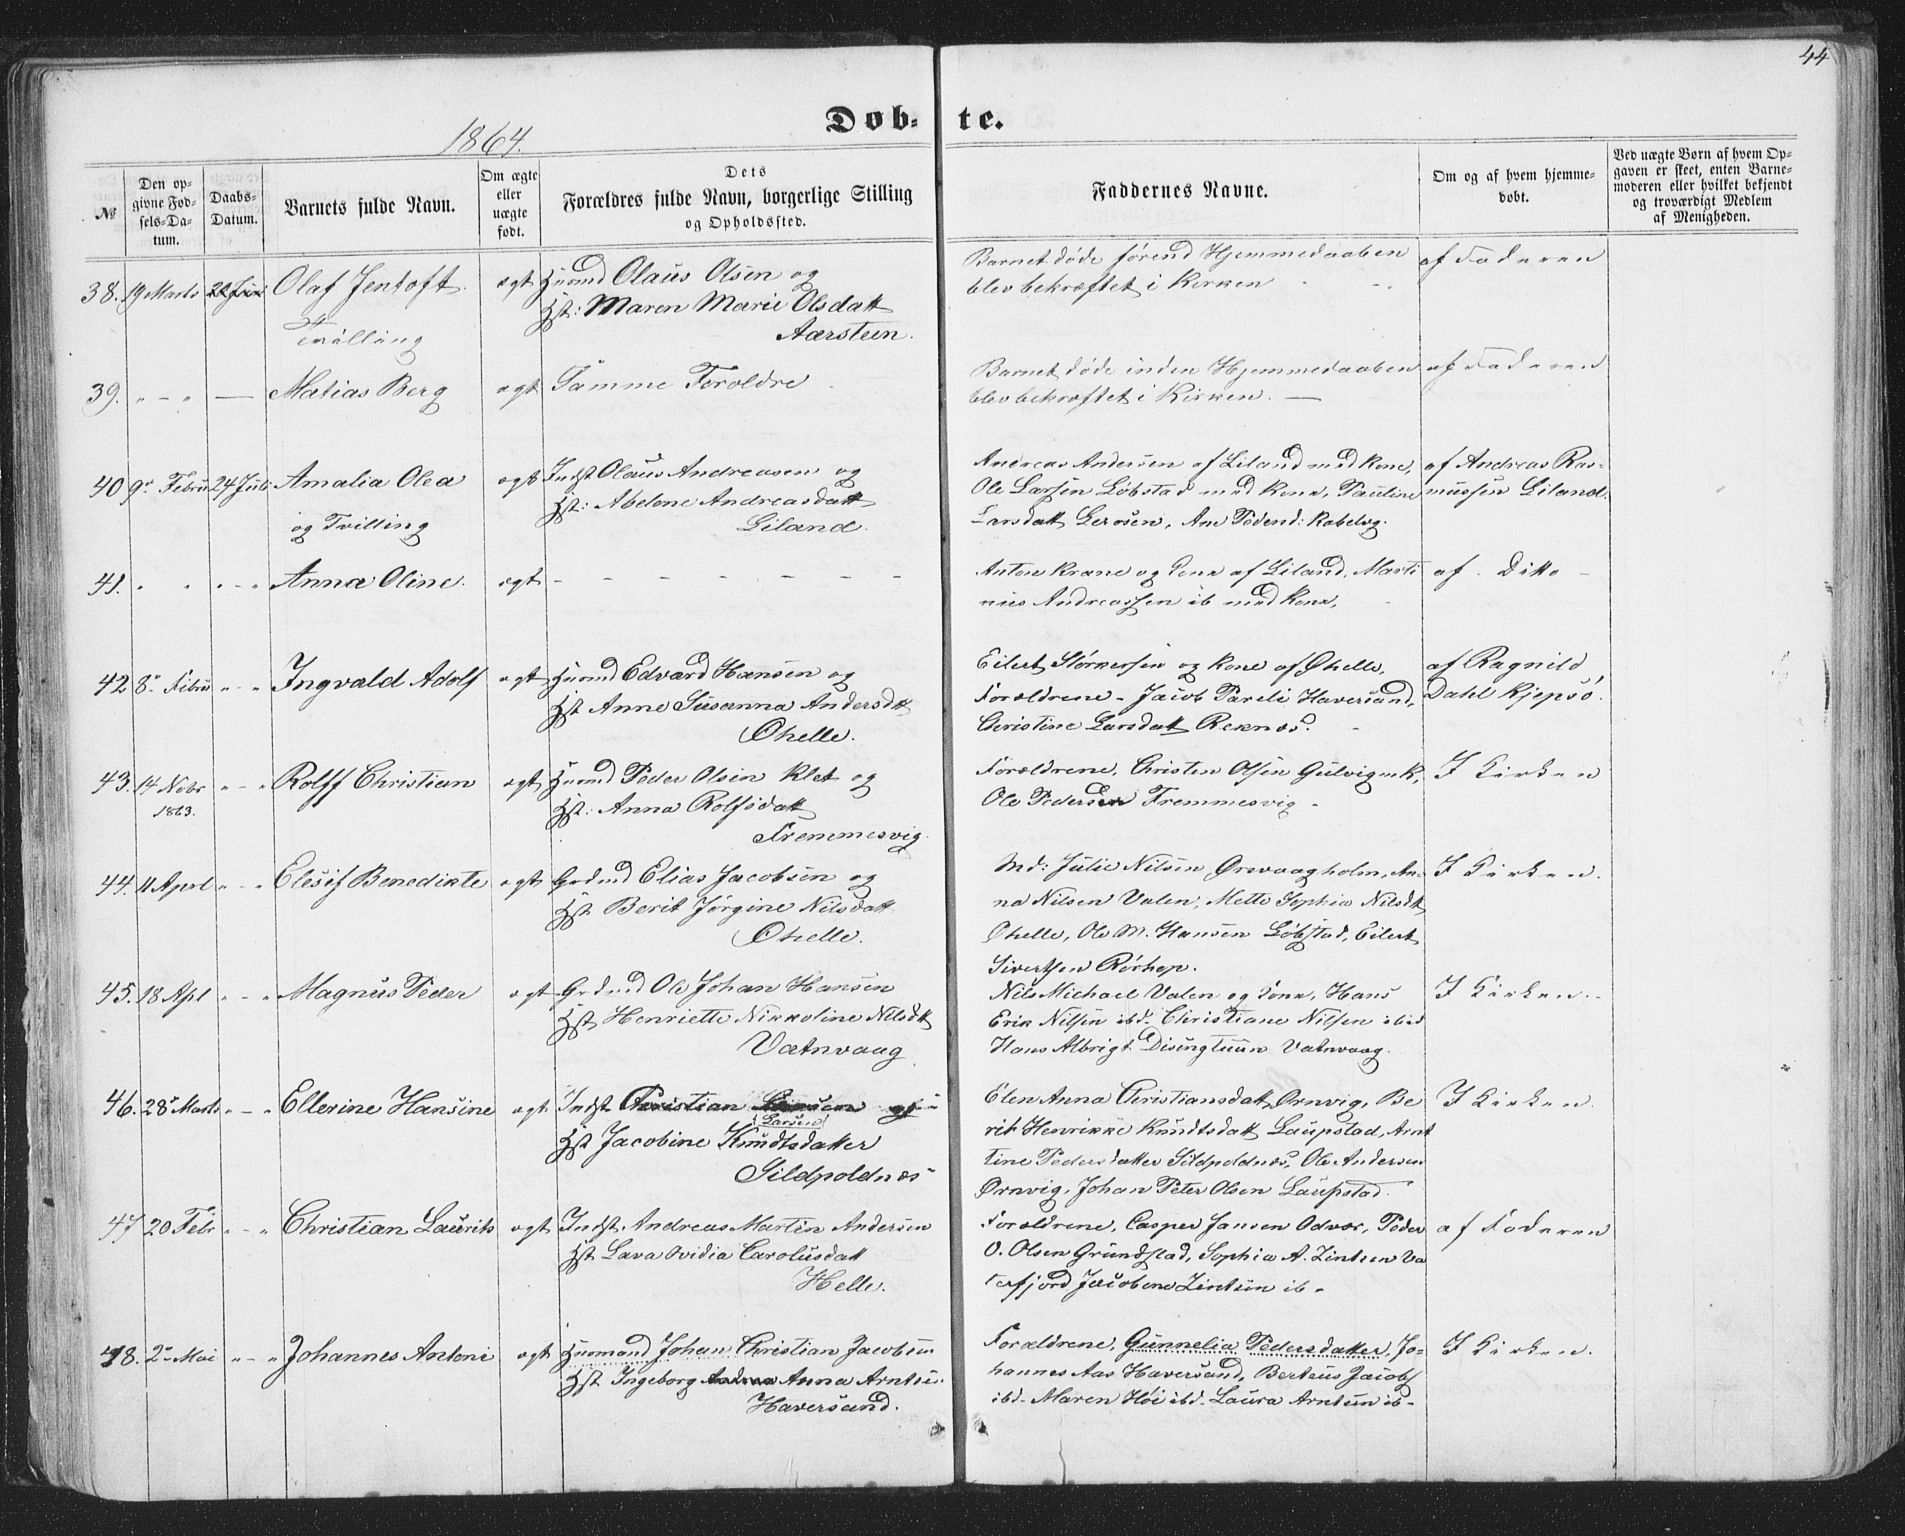 44
Døb-te.
1864.
№
Den op-
givne Fød-
sels-Da-
tum.
Daabs-
Datum.
Barnets fulde Navn.
Om ægte
eller
uægte
født.
Dets
Forældres fulde Navn, borgerlige Stilling
og Opholdssted.
Faddernes Navne.
Om og af hvem hjemme-
døbt.
Ved uægte Børn af hvem Op-
gaven er skeet, enten Barne-
moderen eller hvilket bekjendt
og troværdigt Medlem
af Menigheden.
38. 19 Marts Olaf Jentoft ægt Huusmd Olaus Olsen og
Hst: Maren Marie Olsdatt
Tvilling Aarsteen.
Barnet døde førend Hjemmedaaben af Faderen
blev bekræftet i Kirken
39. " - " — Matias Berg ægt Samme Foroldre
Barnet døde inden Hjemmedaaben af Faderen
blev bekræftet i Kirken. —
40 9' Febru 24 Juli Amalia Olea ægt Indst Olaus Andreasen og
Hst: Abelone Andreasdatt
og Tvilling Liland.
Andreas Andersen af Liland med Kone, af Andreas Ras-
Ole Larsen Løbstad med Kone, Pauline mussen Liland.
Larsdatt Gerosen, Ane Pedersd: Kabelvg.
41. " " " - " Anna Oline. ægt - - - - - -
Anton Krane og Kone af Liland, Marti af Ditto -
nus Andreassen ib med Kone,
42 8' Febru " - " Ingvald Adolf ægt Huusmd Edvard Hansen og
Hst Anne Susanna Andersdtt
Ohelle.
Eilert Størkersen og Kone af Øhelle, af Ragnild
Forældrene - Jacob Pareli Haversand, Dahl Kjepsø.
Christine Larsdatt Reknes.
43. 14 Nobr " - " Rolff Christian ægt Huusmd Peder Olsen Klet og
1863.
Hst: Anna Rolfsdatt
Fremmesvig.
Forældrene, Christen Olsen Gulvigmk, I Kirken
Ole Pedersen Fremmesvig -
44. 11 Aprl " - " Elesif Benedikte ægt Grdmd Elias Jacobsen og
Hst Berit Jørgine Nilsdatt
Ohelle.
Md: Julie Nilsen Ørsvaagholm, An- I Kirken.
na Nilsen Valen, Mette Sophia Nilsdtt
Ohelle, Ole M. Hansen Løbstad, Eilert
Sivertsen Rørhop.
45. 18 Apl " - " Magnus Peder ægt Grdmd Ole Johan Hansen
Hst Henriette Nikkoline Nilsdtt
Vatnvaag
Nils Michael Valen og Kone, Hans I Kirken. -
Erik Nilsen ibd. Christiane Nilsen ibid
Hans Albrigt Disingtuun Vatnvaag.
46. 28' Marts " - " Ellerine Hansine ægt Indst Christian Larsen og
Larsen
Hst Jacobine Knudtsdatter
Sildpoldnes
Elen Anna Christiansdatt Ørnvig, Be I Kirken
rit Henrikke Knudtsdatt Laupstad, Arnt
tine Pedersdatter Sildpoldnes, Ole Andersen
Ørnvig, Johan Peter Olsen Laupstad.
47 20 Febr " - " Christian Laurits ægt Indst. Andreas Martin Andersen
Hst Lava Ovidia Carolusdatt
Helle.
Forældrene, Casper Jansen Odvær, Peder af Faderen
O. Olsen Grundstad, Sophia A. Zintsen Va
terfjord Jacobene Zintsen ib -
48. 2' Mai " - " Johannes Antoni ægt Huusmand Johan Christian Jacobsen
Hst Ingeborg Andrea Anna Arntsd.
Haversand.
Forældrene, Gunnelia Pedersdatter, Jo- I Kirken.
hannes Aas Haversand, Berteus Jacobs
ibd- Maren Høi ibd- Laura Arntsen ib-